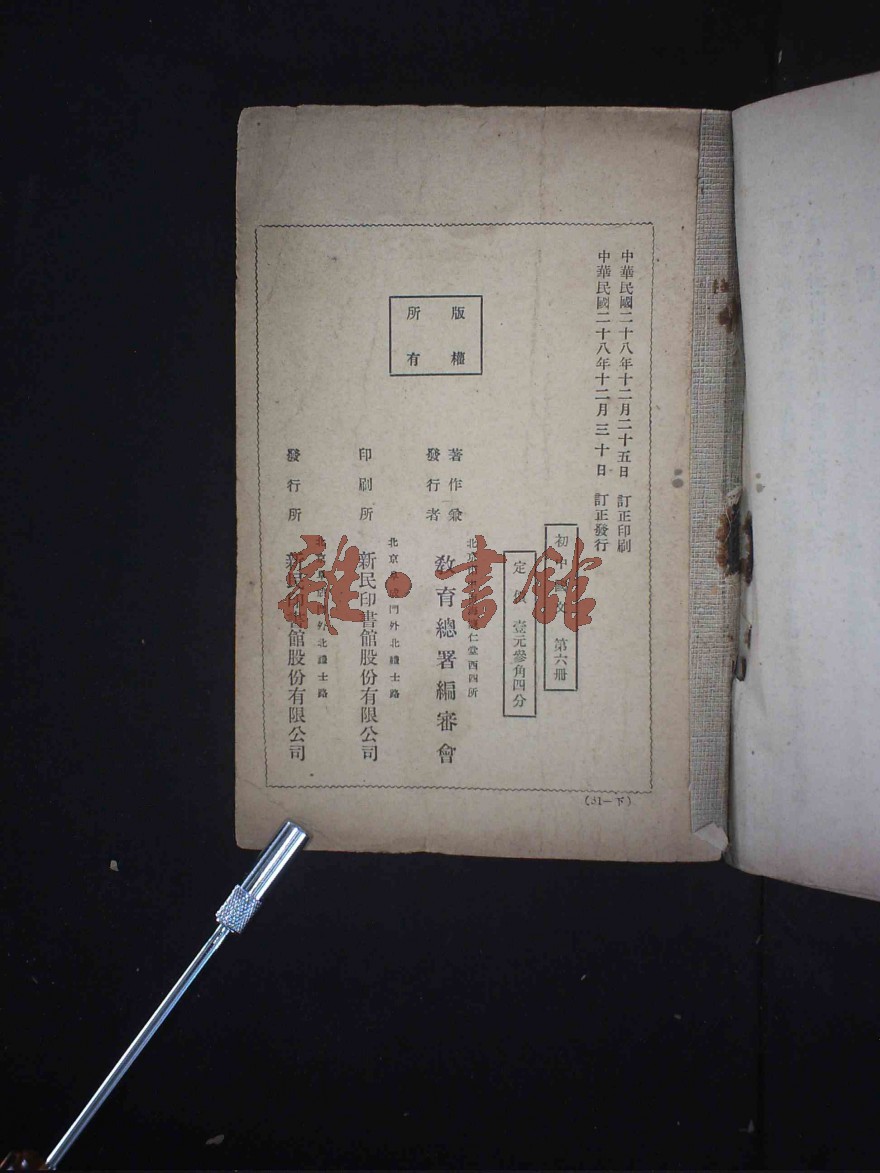 中華民國二十八年十二月二十五日 訂正印刷
中華民國二十八年十二月三十日 訂正發行
初中國文 第六冊
定價 壹元參角四分
版權
所有
仁堂西四所
著作兼
發行者
敎育總署編審會
北京 門外北禮士路
印刷所
新民印書館股份有限公司
外北禮士路
發行所
新民印書館股份有限公司
(31—下)
雜·書館